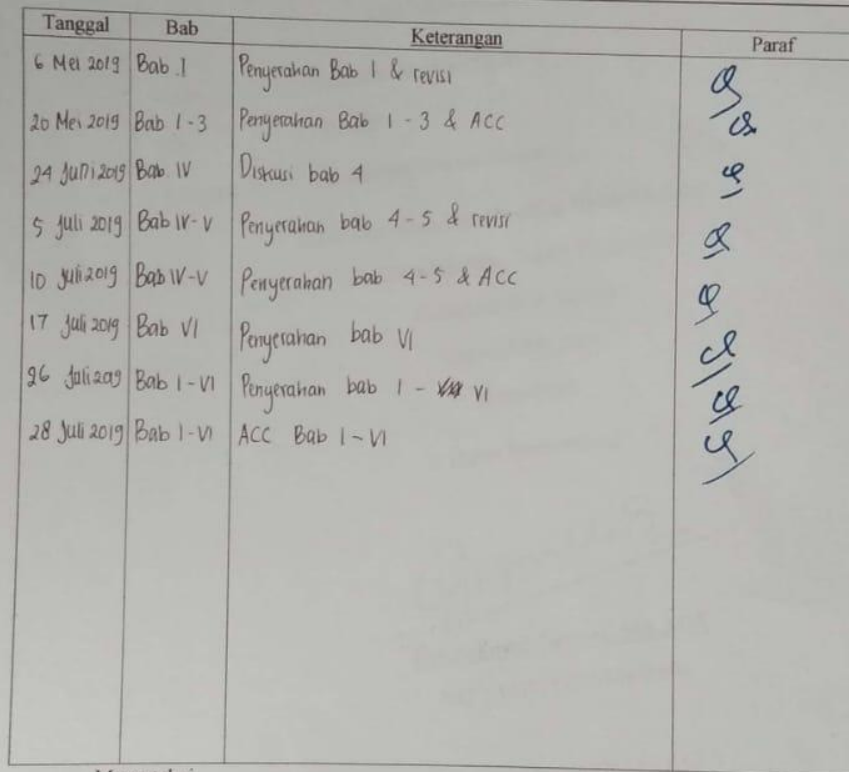 Tanggal Bab Keterangan Paraf
6 Mei 2019 Bab I Penyerahan Bab 1 & revisi
20 Mei 2019 Bab 1-3 Penyerahan Bab 1-3 & ACC
24 Juni 2019 Bab IV Diskusi bab 4
5 Juli 2019 Bab IV-V Penyerahan bab 4-5 & revisi
10 Juli 2019 Bab IV-V Penyerahan bab 4-5 & ACC
17 Juli 2019 Bab VI Penyerahan bab VI
26 Juli 209 Bab I-VI Penyerahan bab I - VI
28 Juli 2019 Bab I-VI ACC Bab I-VI